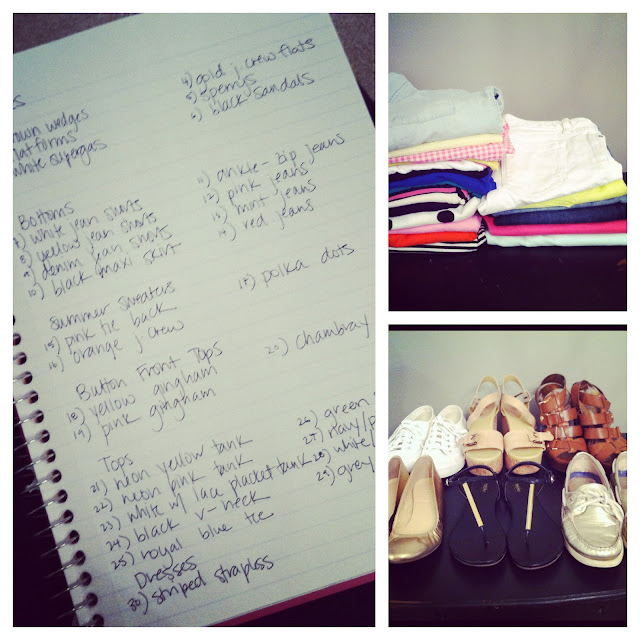 4) gold j crew flats
5) sperrys
6) black sandals
wedges
white supergas
Bottoms
7) white jean shorts
8) yellow jean shorts
9) denim jean shorts
10) black maxi skirt
11) ankle-zip jeans
12) pink jeans
13) mint jeans
14) red jeans
Summer Sweaters
15) pink tie back
16) orange j crew
17) polka dots
Button Front Tops
18) yellow gingham
19) pink gingham
20) chambray
Tops
21) neon yellow tank
22) neon pink tank
23) white w/ lace placket tank
24) black v-neck
25) royal blue tee
26) green
27) navy/
28) white/
29) grey
Dresses
30) striped strapless